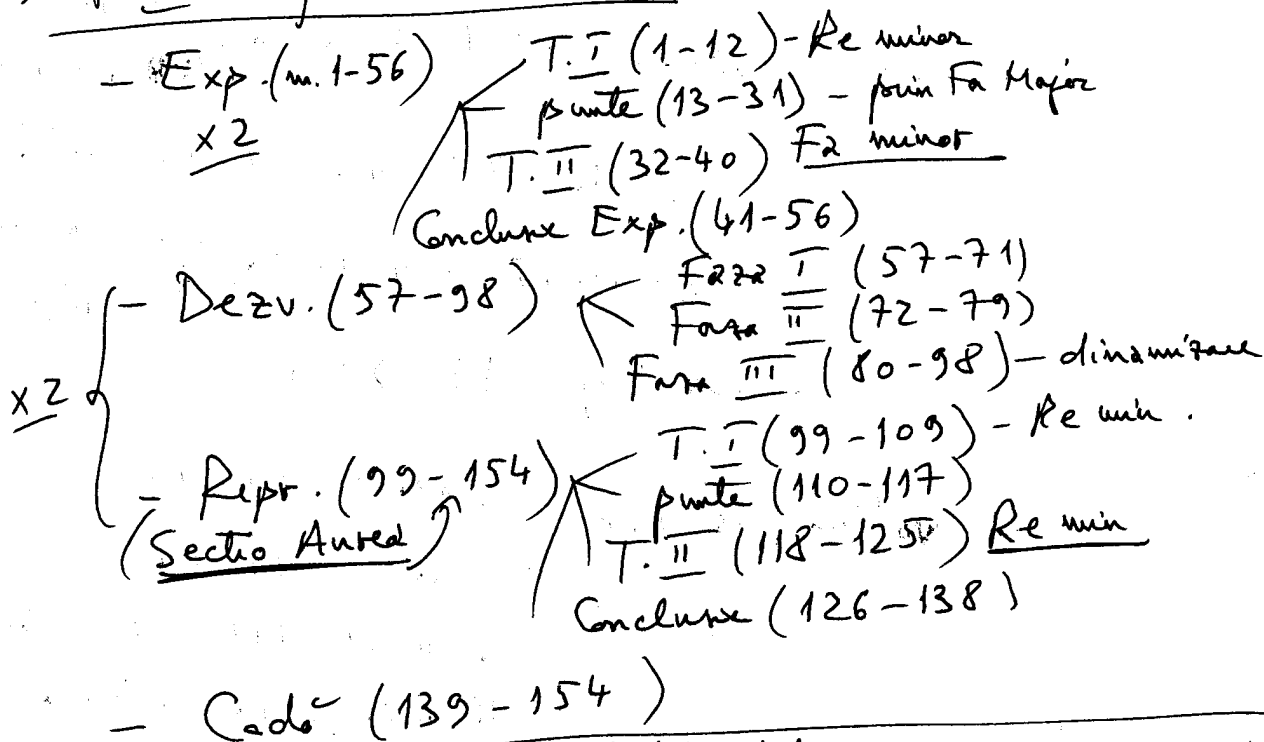 - Exp. (m. 1-56)
x 2
T. I (1-12) - Re minor
punte (13-31) - prin Fa Major
T. II (32-40) Fa minor
Concluzie Exp. (41-56)
x 2
- Dezv. (57-98)
Faza I (57-71)
Faza II (72-79)
Faza III (80-98) - dinamizare
- Repr. (99-154)
(Sectio Aurea)
T. I (99-109) - Re min.
punte (110-117)
T. II (118-125) Re min
Concluzie (126-138)
- Codă (139-154)